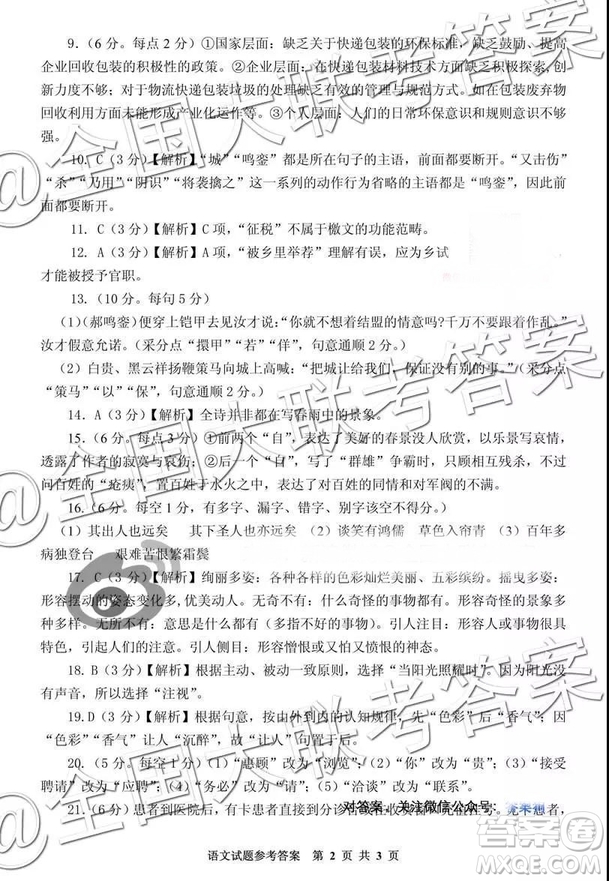 9.（6分。每点2分）①国家层面：缺乏关于快递包装的环保标准，缺乏鼓励、提高
企业回收包装的积极性的政策。②企业层面：在快递包装材料技术方面缺乏研究，创
新力度不够；对于物流快递包装垃圾的处理缺乏有效的管理与规范方式。如在包装废弃物
回收利用方面未能形成产业化运作等。③个人层面：人们的日常环保意识和规则意识不够
强。
10. C（3分）【解析】“城”“鸣銮”都是所在句子的主语，前面都要断开。“又击伤”
“杀”“乃用”“阴识”“将袭擒之”这一系列的动作行为省略的主语都是“鸣銮”，因此前
面都要断开。
11. C（3分）【解析】C项，“征税”不属于檄文的功能范畴。
12. A（3分）【解析】A项，“被乡里举荐”理解有误，应为乡试
才能被授予官职。
13.（10分。每句5分）
（1）（郝鸣銮）便穿上铠甲去见汝才说：“你就不想着结盟的情意吗?千万不要跟着作乱。”
汝才假意允诺。（采分点“擐甲”“若”“佯”，句意通顺2分。）
（2）白贵、黑云祥扬鞭策马向城上高喊：“把城让给我们，保证没有别的事。”（采分点
“策马”“以”“保”，句意通顺2分。）
14. A（3分）【解析】全诗并非都在写春雨中的景象。
15.（6分。每点3分）①前两个“自”，表达了美好的春景没人欣赏，以乐景写哀情，
透露了作者的寂寞与哀伤；②后一个“自”，写了“群雄”争霸时，只顾相互残杀，
百姓的“疮痍”，置百姓于水火之中，表达了对百姓的同情和对军阀的不满。
16.（6分。每空1分，有多字、漏字、错字、别字该空不得分。）
（1）其出人也远矣　其下圣人也亦远矣（2）谈笑有鸿儒　草色入帘青（3）百年多
病独登台　艰难苦恨繁霜鬓
17. C（3分）【解析】绚丽多姿：各种各样的色彩灿烂美丽、五彩缤纷。摇曳多姿：
形容摆动的姿态变化多,优美动人。无奇不有：什么奇怪的事物都有。形容奇怪的景象多
种多样。无所不有：意思是什么都有（多指不好的事物）。引人注目：形容人或事物很具
特色，引人注意。引人侧目：形容憎恨或又怕又愤恨的神态。
18. B（3分）【解析】根据主动、被动一致原则，选择“当阳光照耀时”。因为阳光没
有声音，所以选择“注视”。
19.D（3分）【解析】根据句意，按由外到内的认知规律，先“色彩”后“香气”；因
“色彩”“香气”让人“沉醉”，故“让人”句置于后。
20.（5分。每空1分）（1）“惠顾”改为“浏览”（2）“你”改为“贵”；（3）“接受
聘请”改为“应聘”；（4）“务必”改为“请”（5）“洽谈”改为“联系”。
21.（6分）患者到医院后，有卡患者直接到分诊台或在收费窗口
对答案，关注微信公众号：
者，
语文试题参考答案　第 2 页 共 3 页
@全国大联考答案
@全国大联考答案
@全国大联考答案